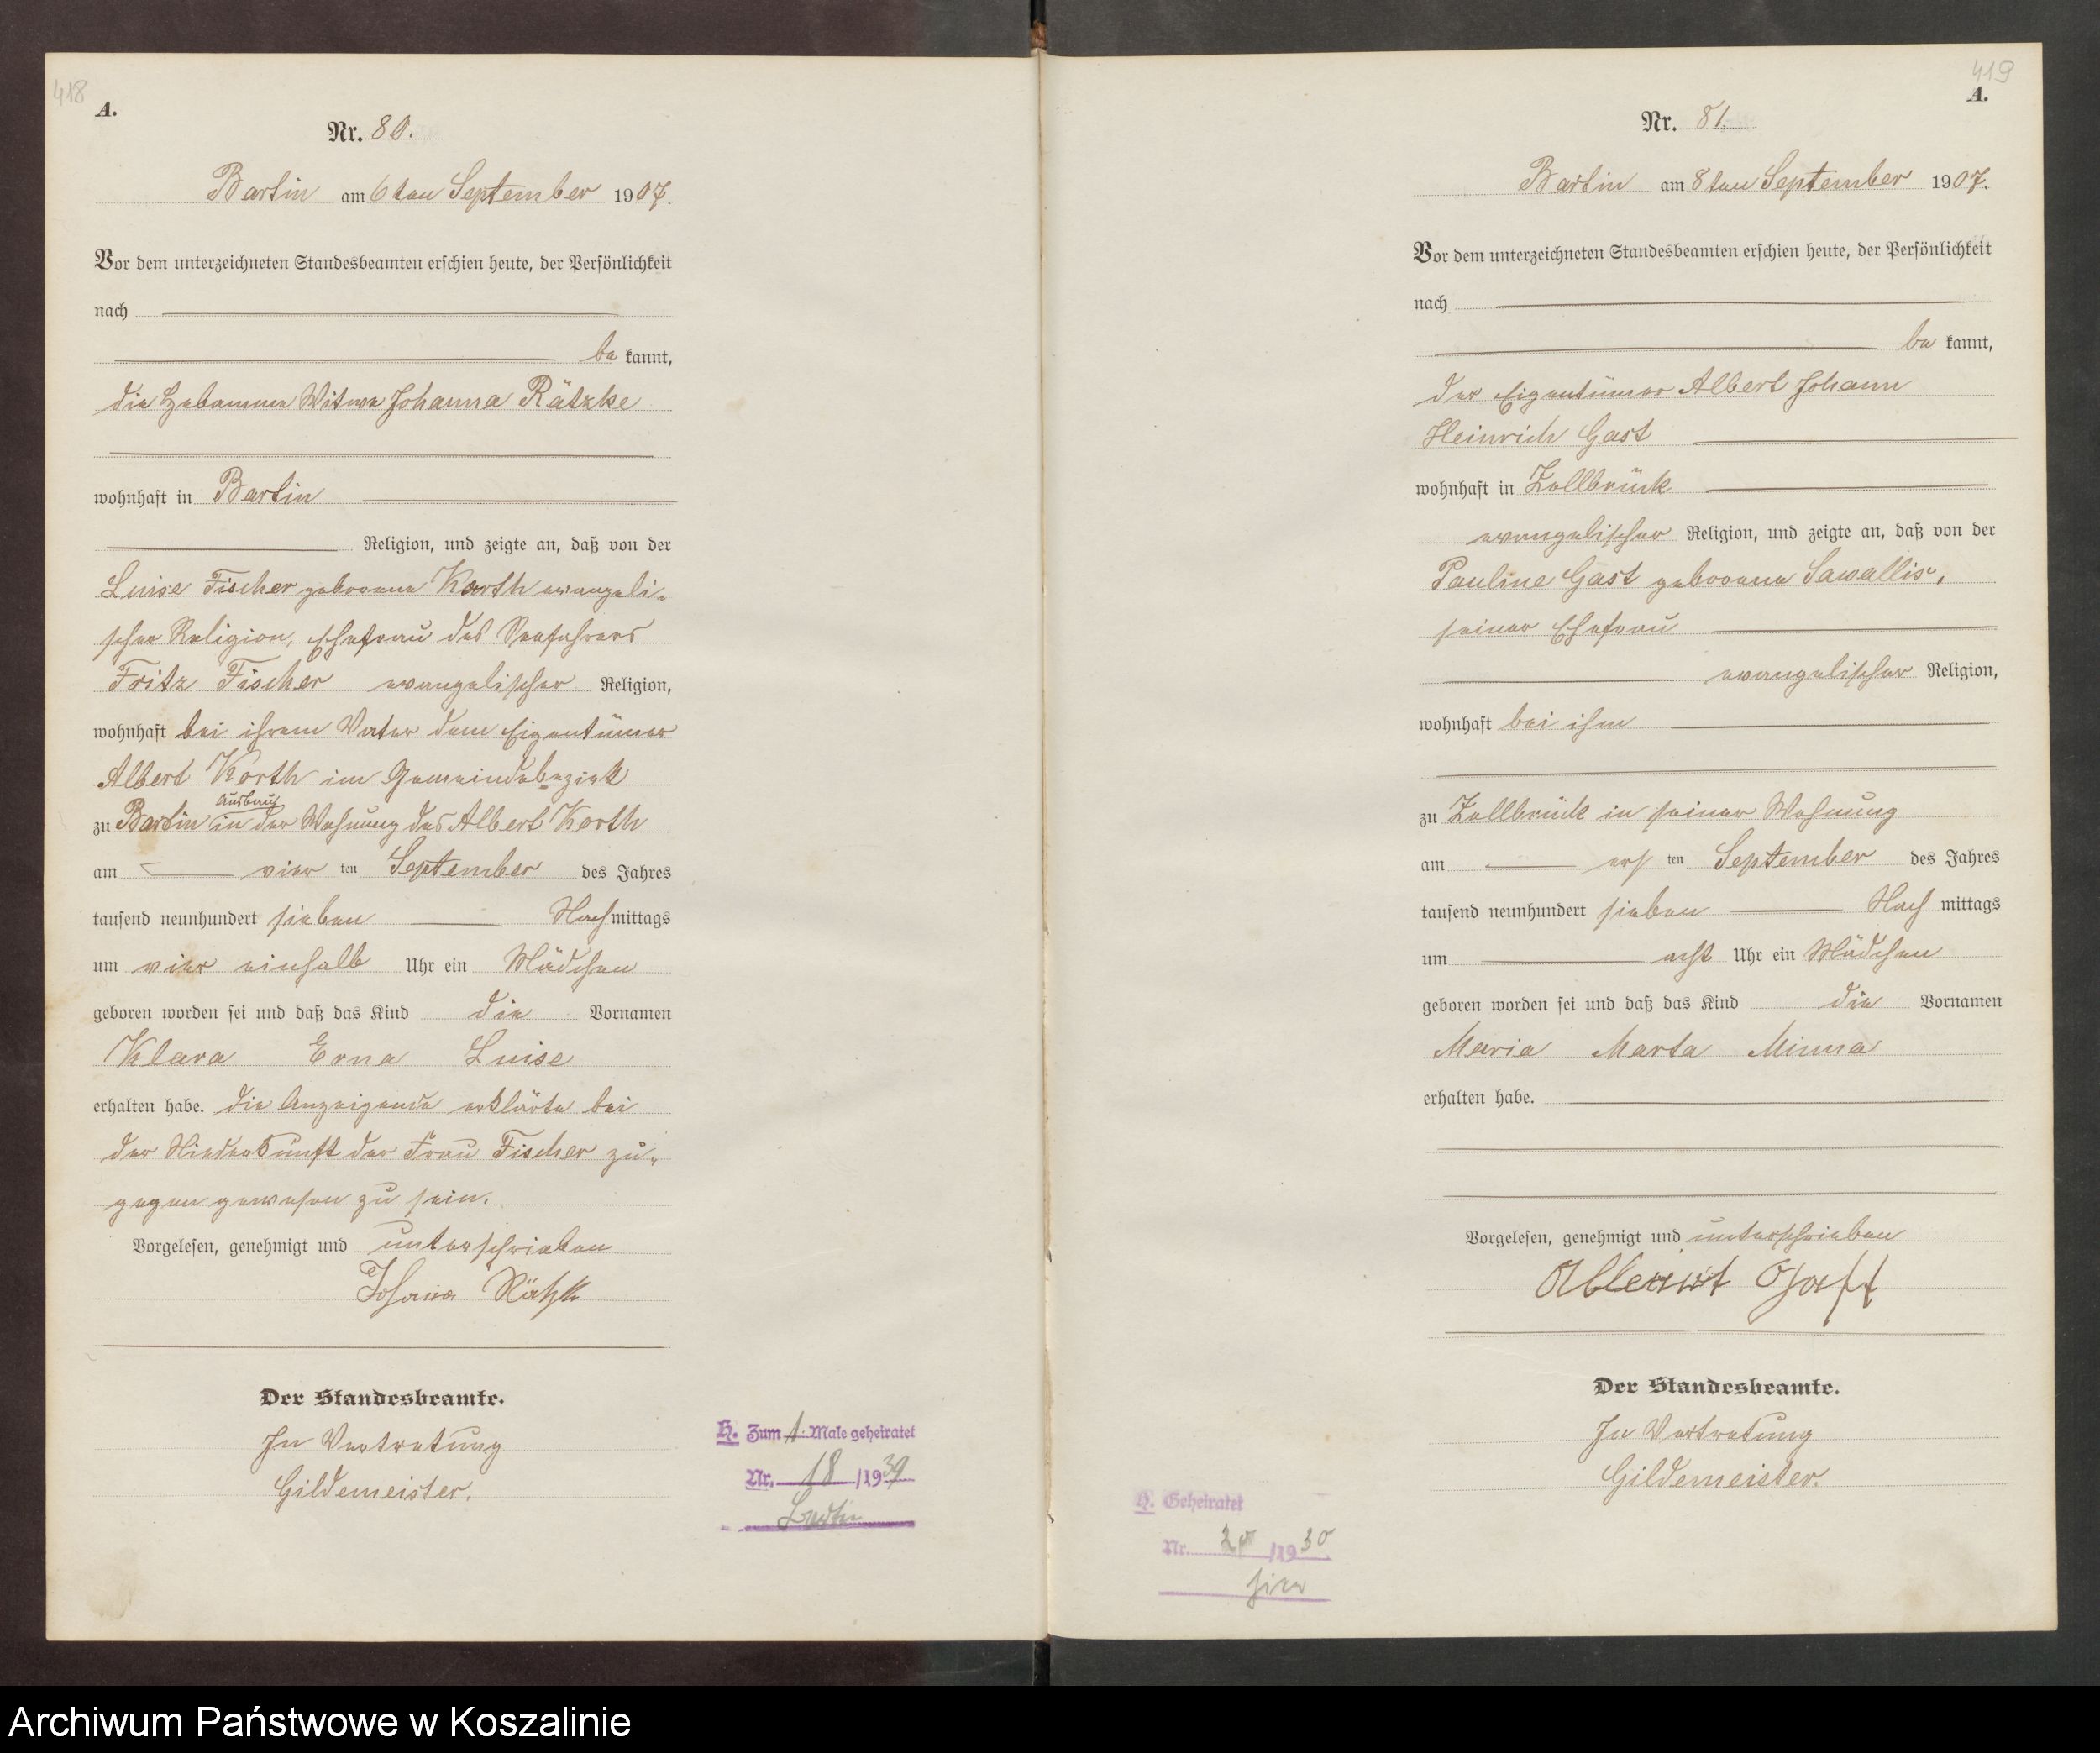 418
A.
Nr. 80.
Bartin am 6ten September 1907.
Vor dem unterzeichneten Standesbeamten erschien heute, der Persönlichkeit
nach
be kannt,
die Hebamme Witwe Johanna Rätzke
wohnhaft in Bartin
Religion, und zeigte an, daß von der
Luise Fischer geborene Korth evangeli-
scher Religion, Ehefrau des Seefahrers
Fritz Fischer evangelischer Religion,
wohnhaft bei ihrem Vater dem Eigentümer
Albert Korth im Gemeindebezirk
Ausbau
zu Bartin in der Wohnung des Albert Korth
am vier ten September des Jahres
tausend neunhundert sieben Nachmittags
um vier einhalb Uhr ein Mädchen
geboren worden sei und daß das Kind die Vornamen
Klara Erna Luise
erhalten habe. Die Anzeigende erklärte bei
der Niederkunft der Frau Fischer zu-
gegen gewesen zu sein.
Vorgelesen, genehmigt und unterschrieben
Johana Rätzk
Der Standesbeamte.
In Vertretung
Gildemeister.
H. Zum 1. Male geheiratet
Nr. 18 /1939
419
A.
Nr. 81.
Bartin am 8ten September 1907.
Vor dem unterzeichneten Standesbeamten erschien heute, der Persönlichkeit
nach
be kannt,
der Eigentümer Albert Johann
Heinrich Gast
wohnhaft in Zollbrück
evangelischer Religion, und zeigte an, daß von der
Pauline Gast geborene Sawallis,
seiner Ehefrau
evangelischer Religion,
wohnhaft bei ihm
zu Zollbrück in seiner Wohnung
am ers ten September des Jahres
tausend neunhundert sieben Nach mittags
um acht Uhr ein Mädchen
geboren worden sei und daß das Kind die Vornamen
Maria Marta Minna
erhalten habe.
Vorgelesen, genehmigt und unterschrieben
Gast
Der Standesbeamte.
In Vertretung
Gildemeister.
H. Geheiratet
Nr. /1930
hier
Archiwum Państwowe w Koszalinie